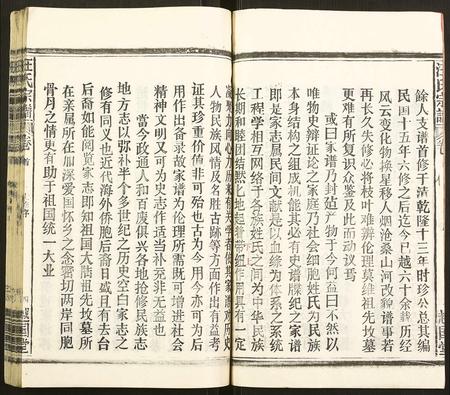 餘人支譜首修于清乾隆十三年時珍公總其編
民國十五年六修之后迄今已越六十余載历经
风云变化物换星移人烟沧桑山河改貌谱事若
再长久失修必将枝叶难辨伦理莫维祖先坟墓
更难有所复识众鉴及此而动议焉
或曰家谱乃封莲产物于今何益曰不然以
唯物史辩证论之家庭乃社会细胞姓氏为民族
本身结构之组成机能其必有史谱牒纪之家谱
即是家志属民间文献是以血缘为体系之系统
工程学相互网络于各族姓氏之间为中华民族
长期和睦团结默化地起着带纽作用具有一定
人物民族风情及名胜古跡等方面作出有益考
证其珍重价值非可殆也古为今用今亦可为后
用作出备录故家谱为伦理所需既可增进社会
精神文明又可为史志作适当补充非无益也
當今政通人和百废俱兴各地抢修民族志
地方志以弥补半个多世纪之历史空白家志之
修有同义也近代海外侨胞后裔日盛且有去台
后裔如能阅览家志即知祖国大陆祖先坟墓所
在亲属所在加深爱国怀乡之念密切两岸同胞
骨月之情更有助于祖国统一大业
汪氏宗譜
卷首
序